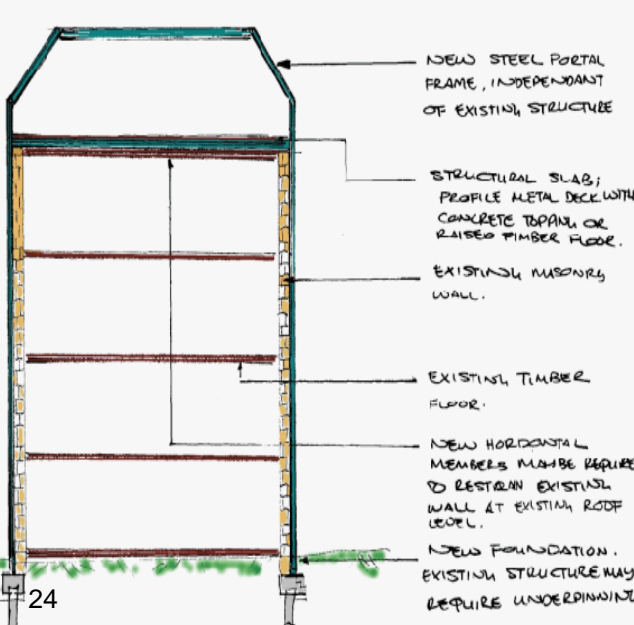 NEW STEEL PORTAL
FRAME, INDEPENDANT
OF EXISTING STRUCTURE
STRUCTURAL SLAB;
PROFILE METAL DECK WITH
CONCRETE TOPPING OR
RAISED TIMBER FLOOR.
EXISTING MASONRY
WALL.
EXISTING TIMBER
FLOOR.
NEW HORIZONTAL
MEMBERS MAYBE REQUIRE
TO RESTRAIN EXISTING
WALL AT EXISTING ROOF
LEVEL.
NEW FOUNDATION.
EXISTING STRUCTURE MAY
REQUIRE UNDERPINNING
24